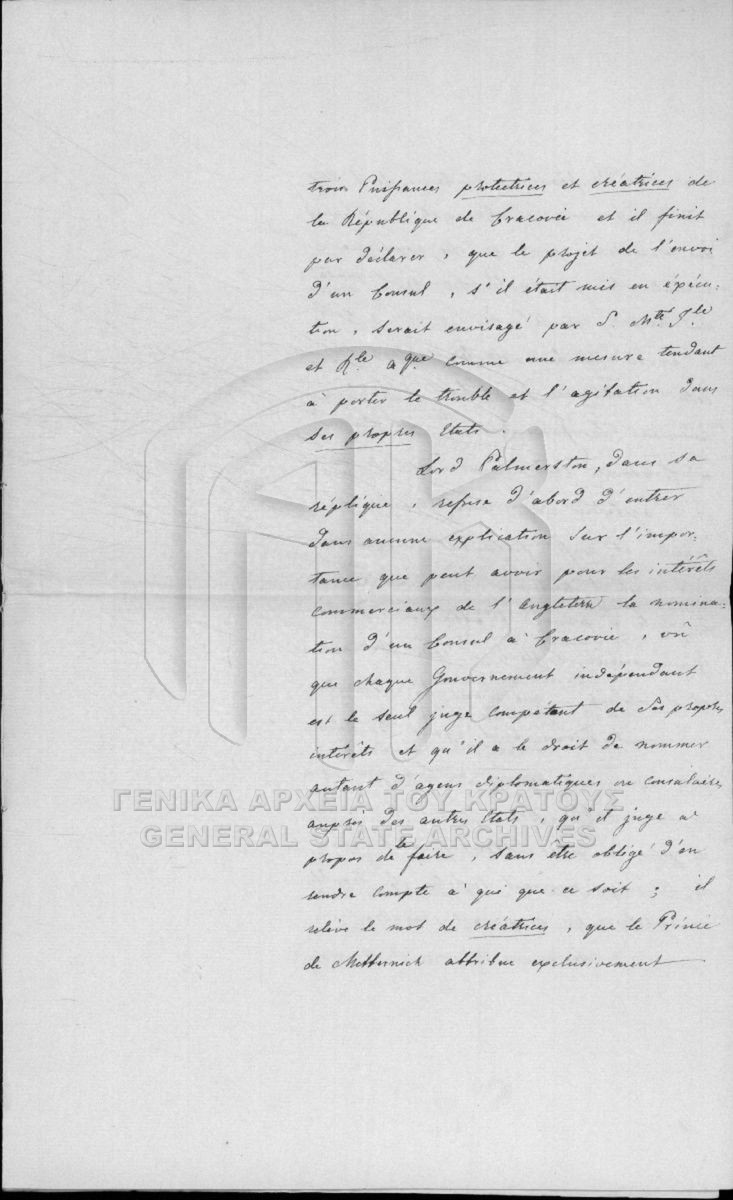 trois Puissances protectrices et créatrices de
la République de Cracovie et il finit
par déclarer, que le projet de l'envoi
d'un Consul, s'il était mis en éxécu-
tion, serait envisagé par S. Mté Jle
et Rle aque comme une mesure tendant
à porter le trouble et l'agitation dans
ses propres Etats.
Lord Palmerston, dans sa
réplique, refuse d'abord d'entrer
dans aucune explication sur l'impor-
tance que peut avoir pour les intérêts
commerciaux de l'Angleterre la nomina-
tion d'un Consul à Cracovie, vû
que chaque Gouvernement indépendant
est le seul juge compétant de ses propres
intérêts et qu'il a le droit de nommer
autant d'agens diplomatiques ou consulaires
auprès des autres Etats, qu'il juge à
propos de le faire, sans être obligé d'en
rendre compte à qui que ce soit; il
relève le mot de créatrices, que le Prince
de Metternich attribue exclusivement
ΓΕΝΙΚΑ ΑΡΧΕΙΑ ΤΟΥ ΚΡΑΤΟΥΣ
GENERAL STATE ARCHIVES